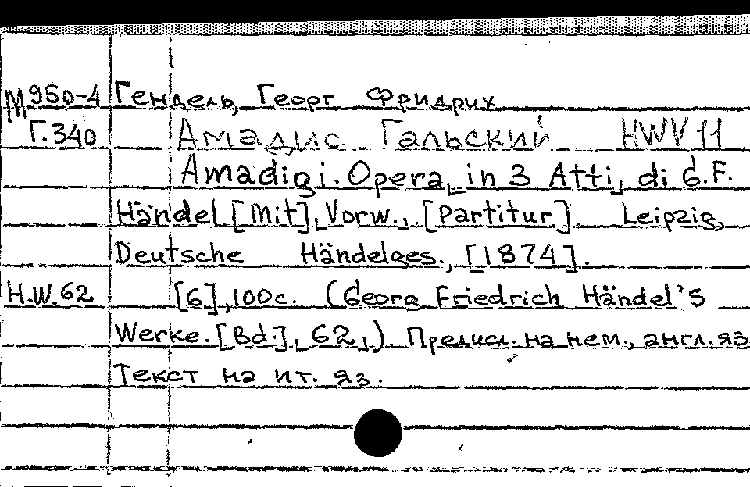 М 960-4 Гендель, Георг Фридрих
Г.340 Амадис Гальский HWV 11
Amadigi. Opera, in 3 Atti, di G.F.
Händel [Mit], Vorw., [Partitur] Leipzig,
Deutsche Händelges., [1874].
H.W.62 [6], 100с. (Georg Friedrich Händel's
Werke. [Bd.], 62,) Предисл. на нем., англ. яз
Текст на ит. яз.